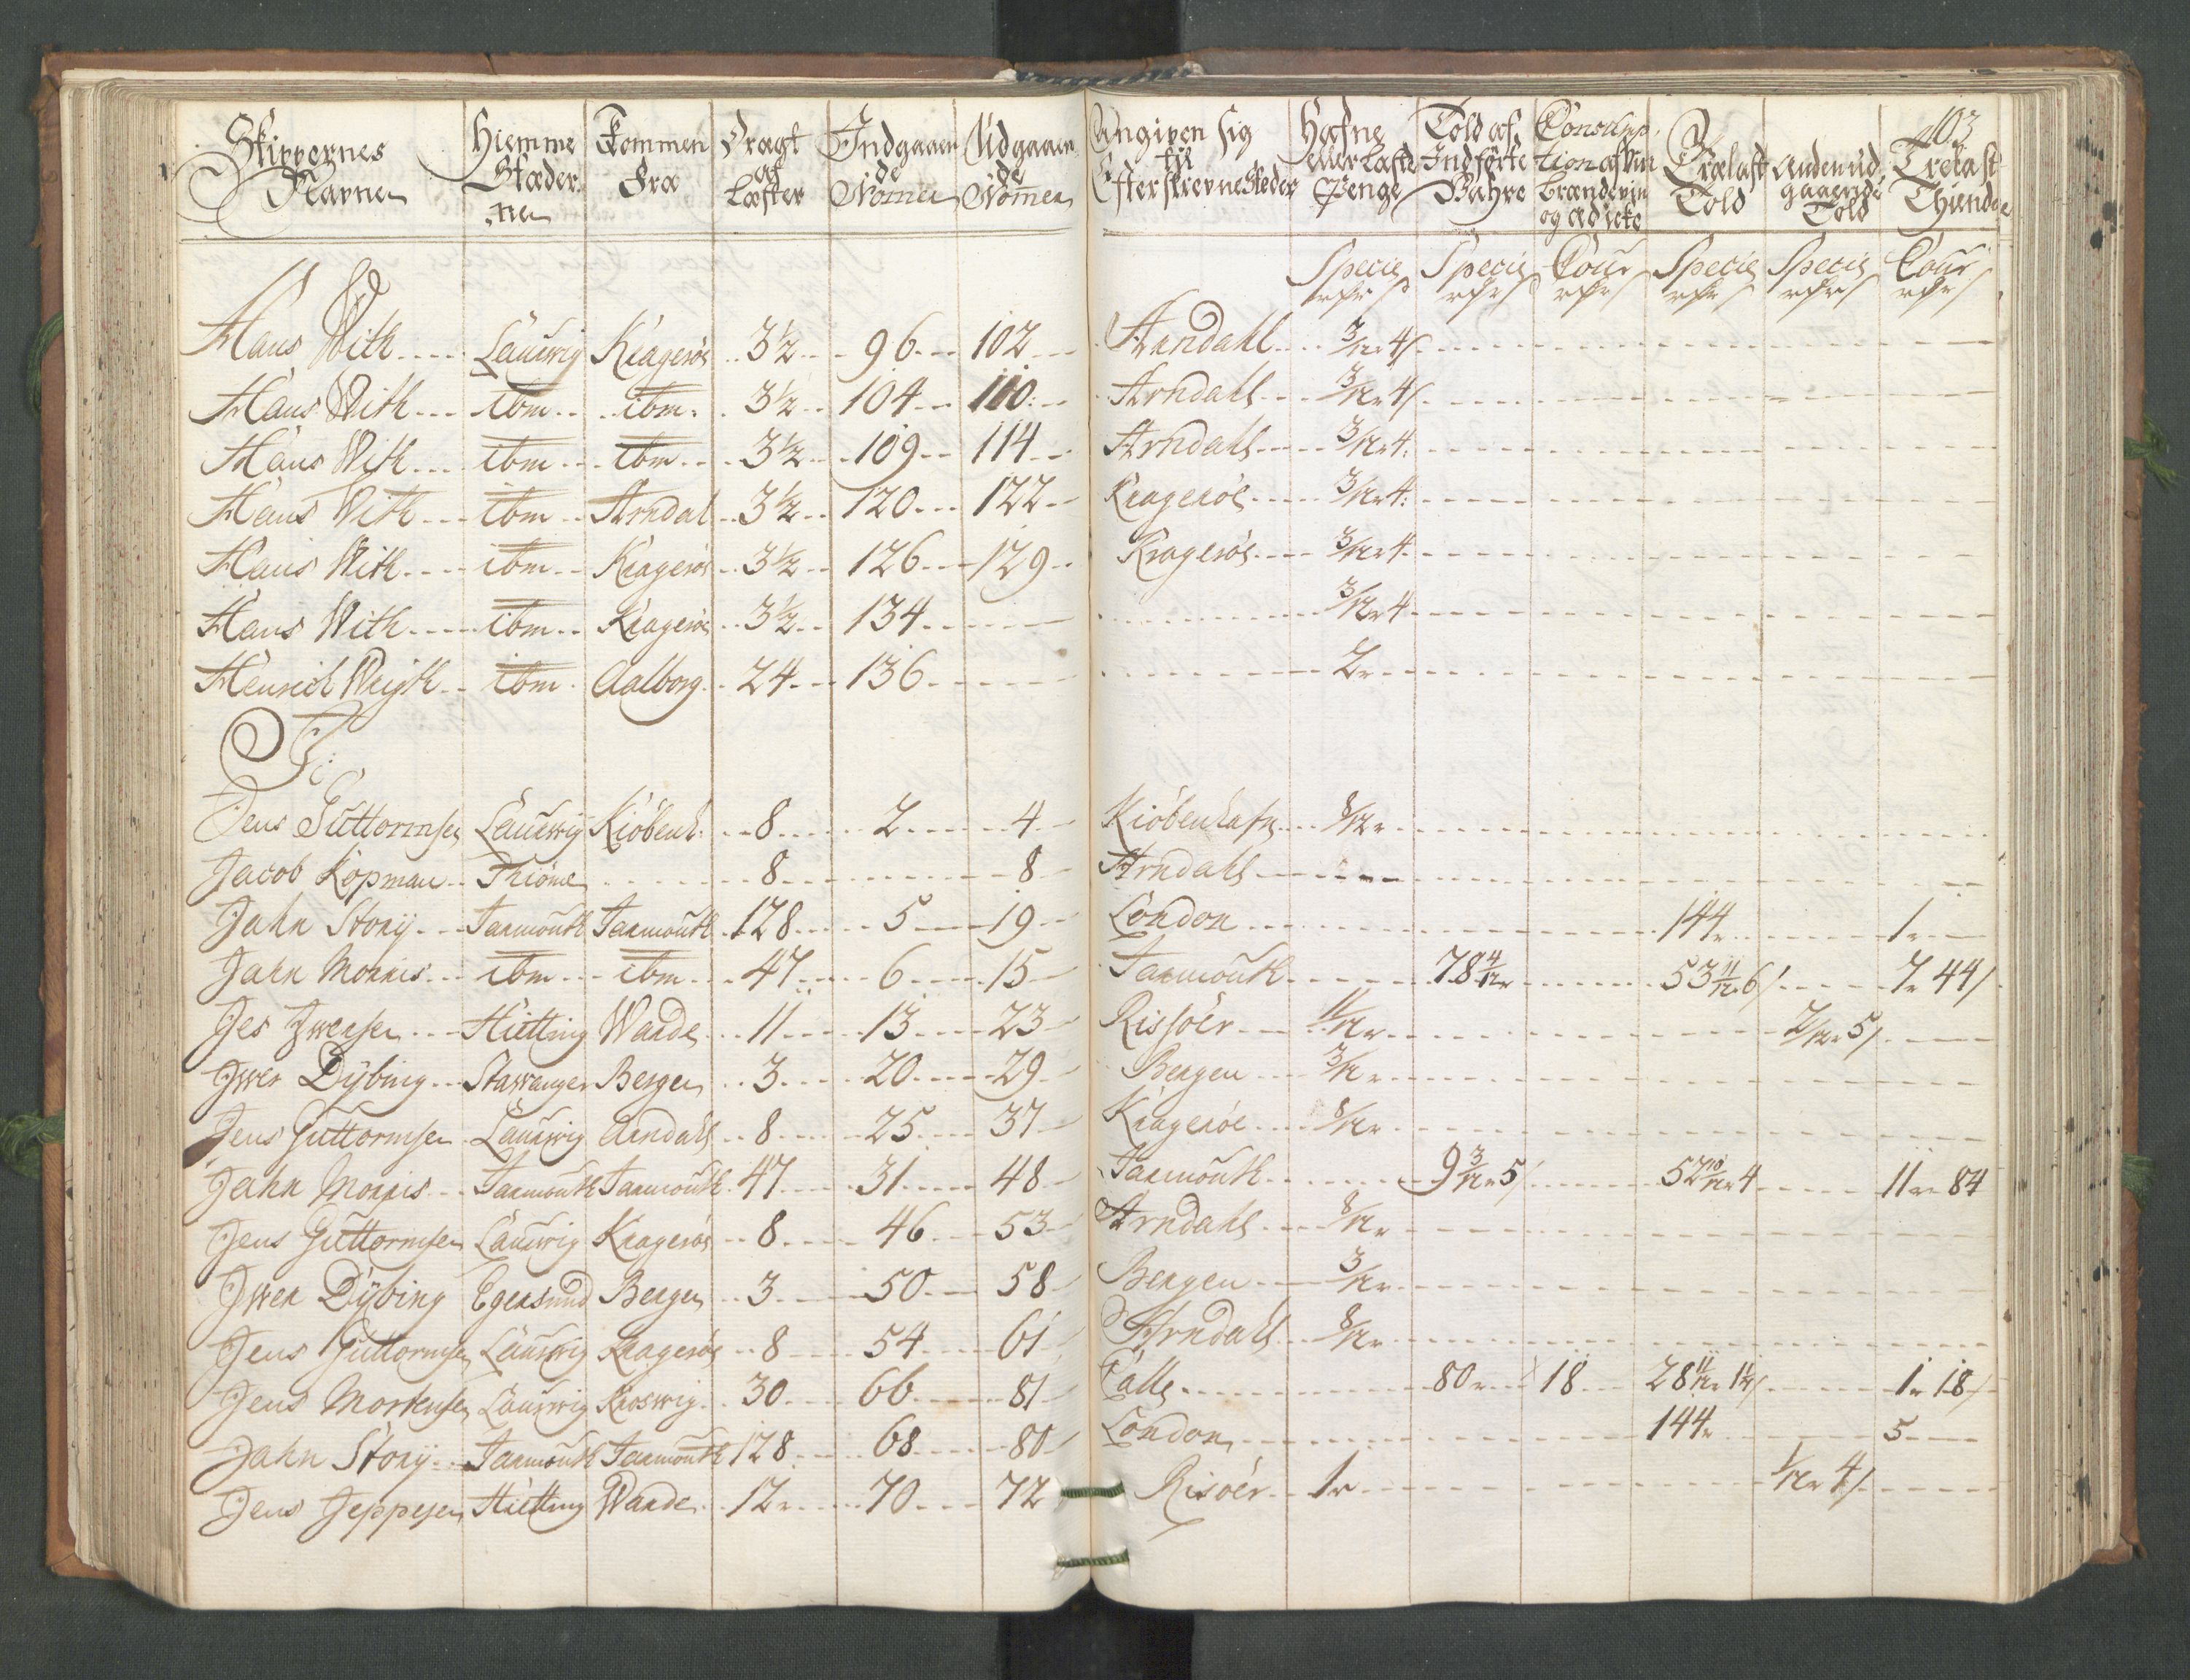 103
Skippernes Navne | Hiemme Stæderne | Kommen Fra | Dragt af Læster | Indgaaende Nommer | Udgaaende Nommer | Angiven sig til Efterskrevne Stæder | Hafne eller Læste Penge | Told af Indførte Vahre | Consumption af Viin Brændeviin og Ædicke | Trælast Told | Anden udgaaende Told | Trælast Thiende
Specie rdr s | Specie rdr s | Cour rdr s | Specie rdr s | Specie rdr s | Cour rdr s
Hans With | Laurwig | Kragerøe | 3½ | 96 | 102 | Arndahl | 3/12 r 4 s
Hans With | ibm | ibm | 3½ | 104 | 110 | Arndahl | 3/12 r 4 s
Hans With | ibm | ibm | 3½ | 109 | 114 | Arndahl | 3/12 r 4
Hans With | ibm | Arndal | 3½ | 120 | 122 | Kragerøe | 3/12 r 4
Hans With | ibm | Kragerøe | 3½ | 126 | 129 | Kragerøe | 3/12 r 4
Hans With | ibm | Kragerøe | 3½ | 134 | 3/12 r 4
Henrich Wejth | ibm | Aalborg | 24 | 136 | 2 r
J:
Jens Guttormsen | Laurwig | Kiøbenh: | 8 | 2 | 4 | Kiøbenhafn | 8/12 r
Jacob Kopman | Thiøme | 8 | 8 | Arndahl
Jahn Story | Jarmouth | Jarmouth | 128 | 5 | 19 | London | 144 r | 1 r
Jahn Morris | ibm | ibm | 47 | 6 | 15 | Jarmouth | 78 4/12 r | 53 11/12 r 6 s | 7 r 44 s
Jes Iwersen | Hietting | Warde | 11 | 13 | 23 | Rissøer | 11/12 r | 2/12 r 5 s
Iwer Dybing | Stawanger | Bergen | 3 | 20 | 29 | Bergen | 3/12 r
Jens Guttormsen | Laurwig | Arndahl | 8 | 25 | 37 | Kragerøe | 8/12 r
Jahn Morris | Jarmouth | Jarmouth | 47 | 31 | 48 | Jarmouth | 9 3/12 r 5 s | 52 10/12 r 4 | 11 r 84
Jens Guttormsen | Laurwig | Kragerøe | 8 | 46 | 53 | Arndahl | 8/12 r
Iwer Dybing | Egersund | Bergen | 3 | 50 | 58 | Bergen | 3/12 r
Jens Guttormsen | Laurwig | Kragerøe | 8 | 54 | 61 | Arndahl | 8/12 r
Jens Mortensen | Laurwig | Kroswig | 30 | 66 | 81 | Calle | 80 r | 18 | 28 11/12 r | 1 r 18 s
Jahn Story | Jarmouth | Jarmouth | 128 | 68 | 80 | London | 144 r | 5
Jens Jeppesen | Hietting | Warde | 12 | 70 | 72 | Risøer | 1 r | 1/12 r 4 s